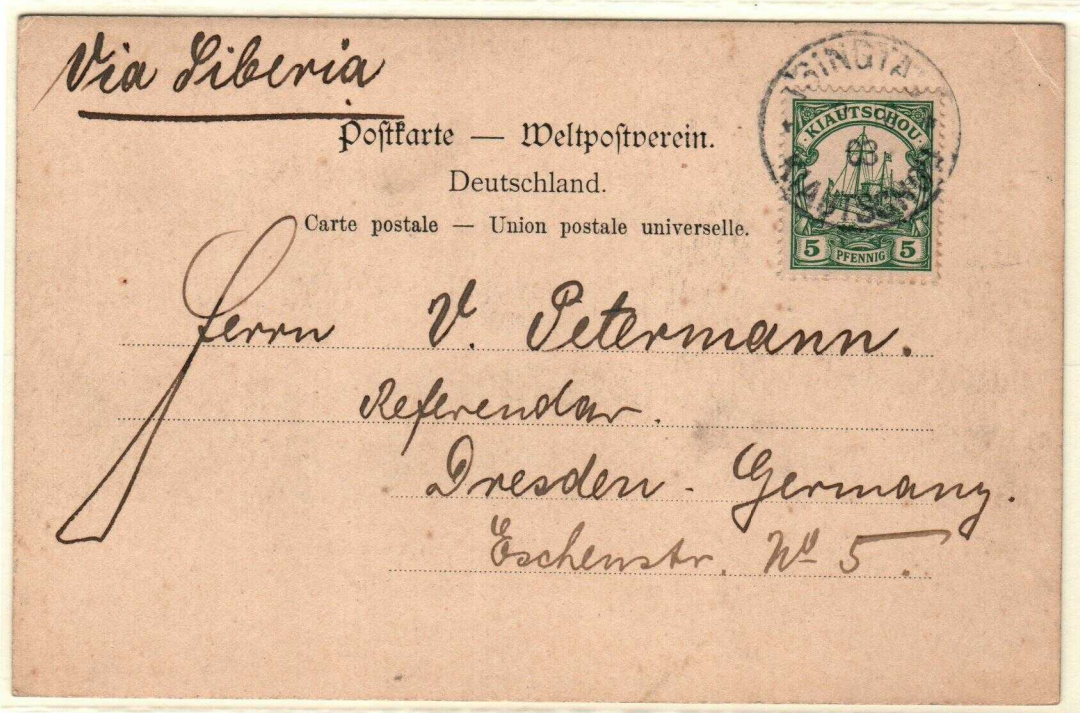 Via Siberia
Postkarte — Weltpostverein.
Deutschland.
Carte postale — Union postale universelle.
TSINGTAU
03
KIAUTSCHOU
KIAUTSCHOU
5 PFENNIG 5
Herrn V. Petermann.
Referendar.
Dresden - Germany.
Eschenstr. No 5.